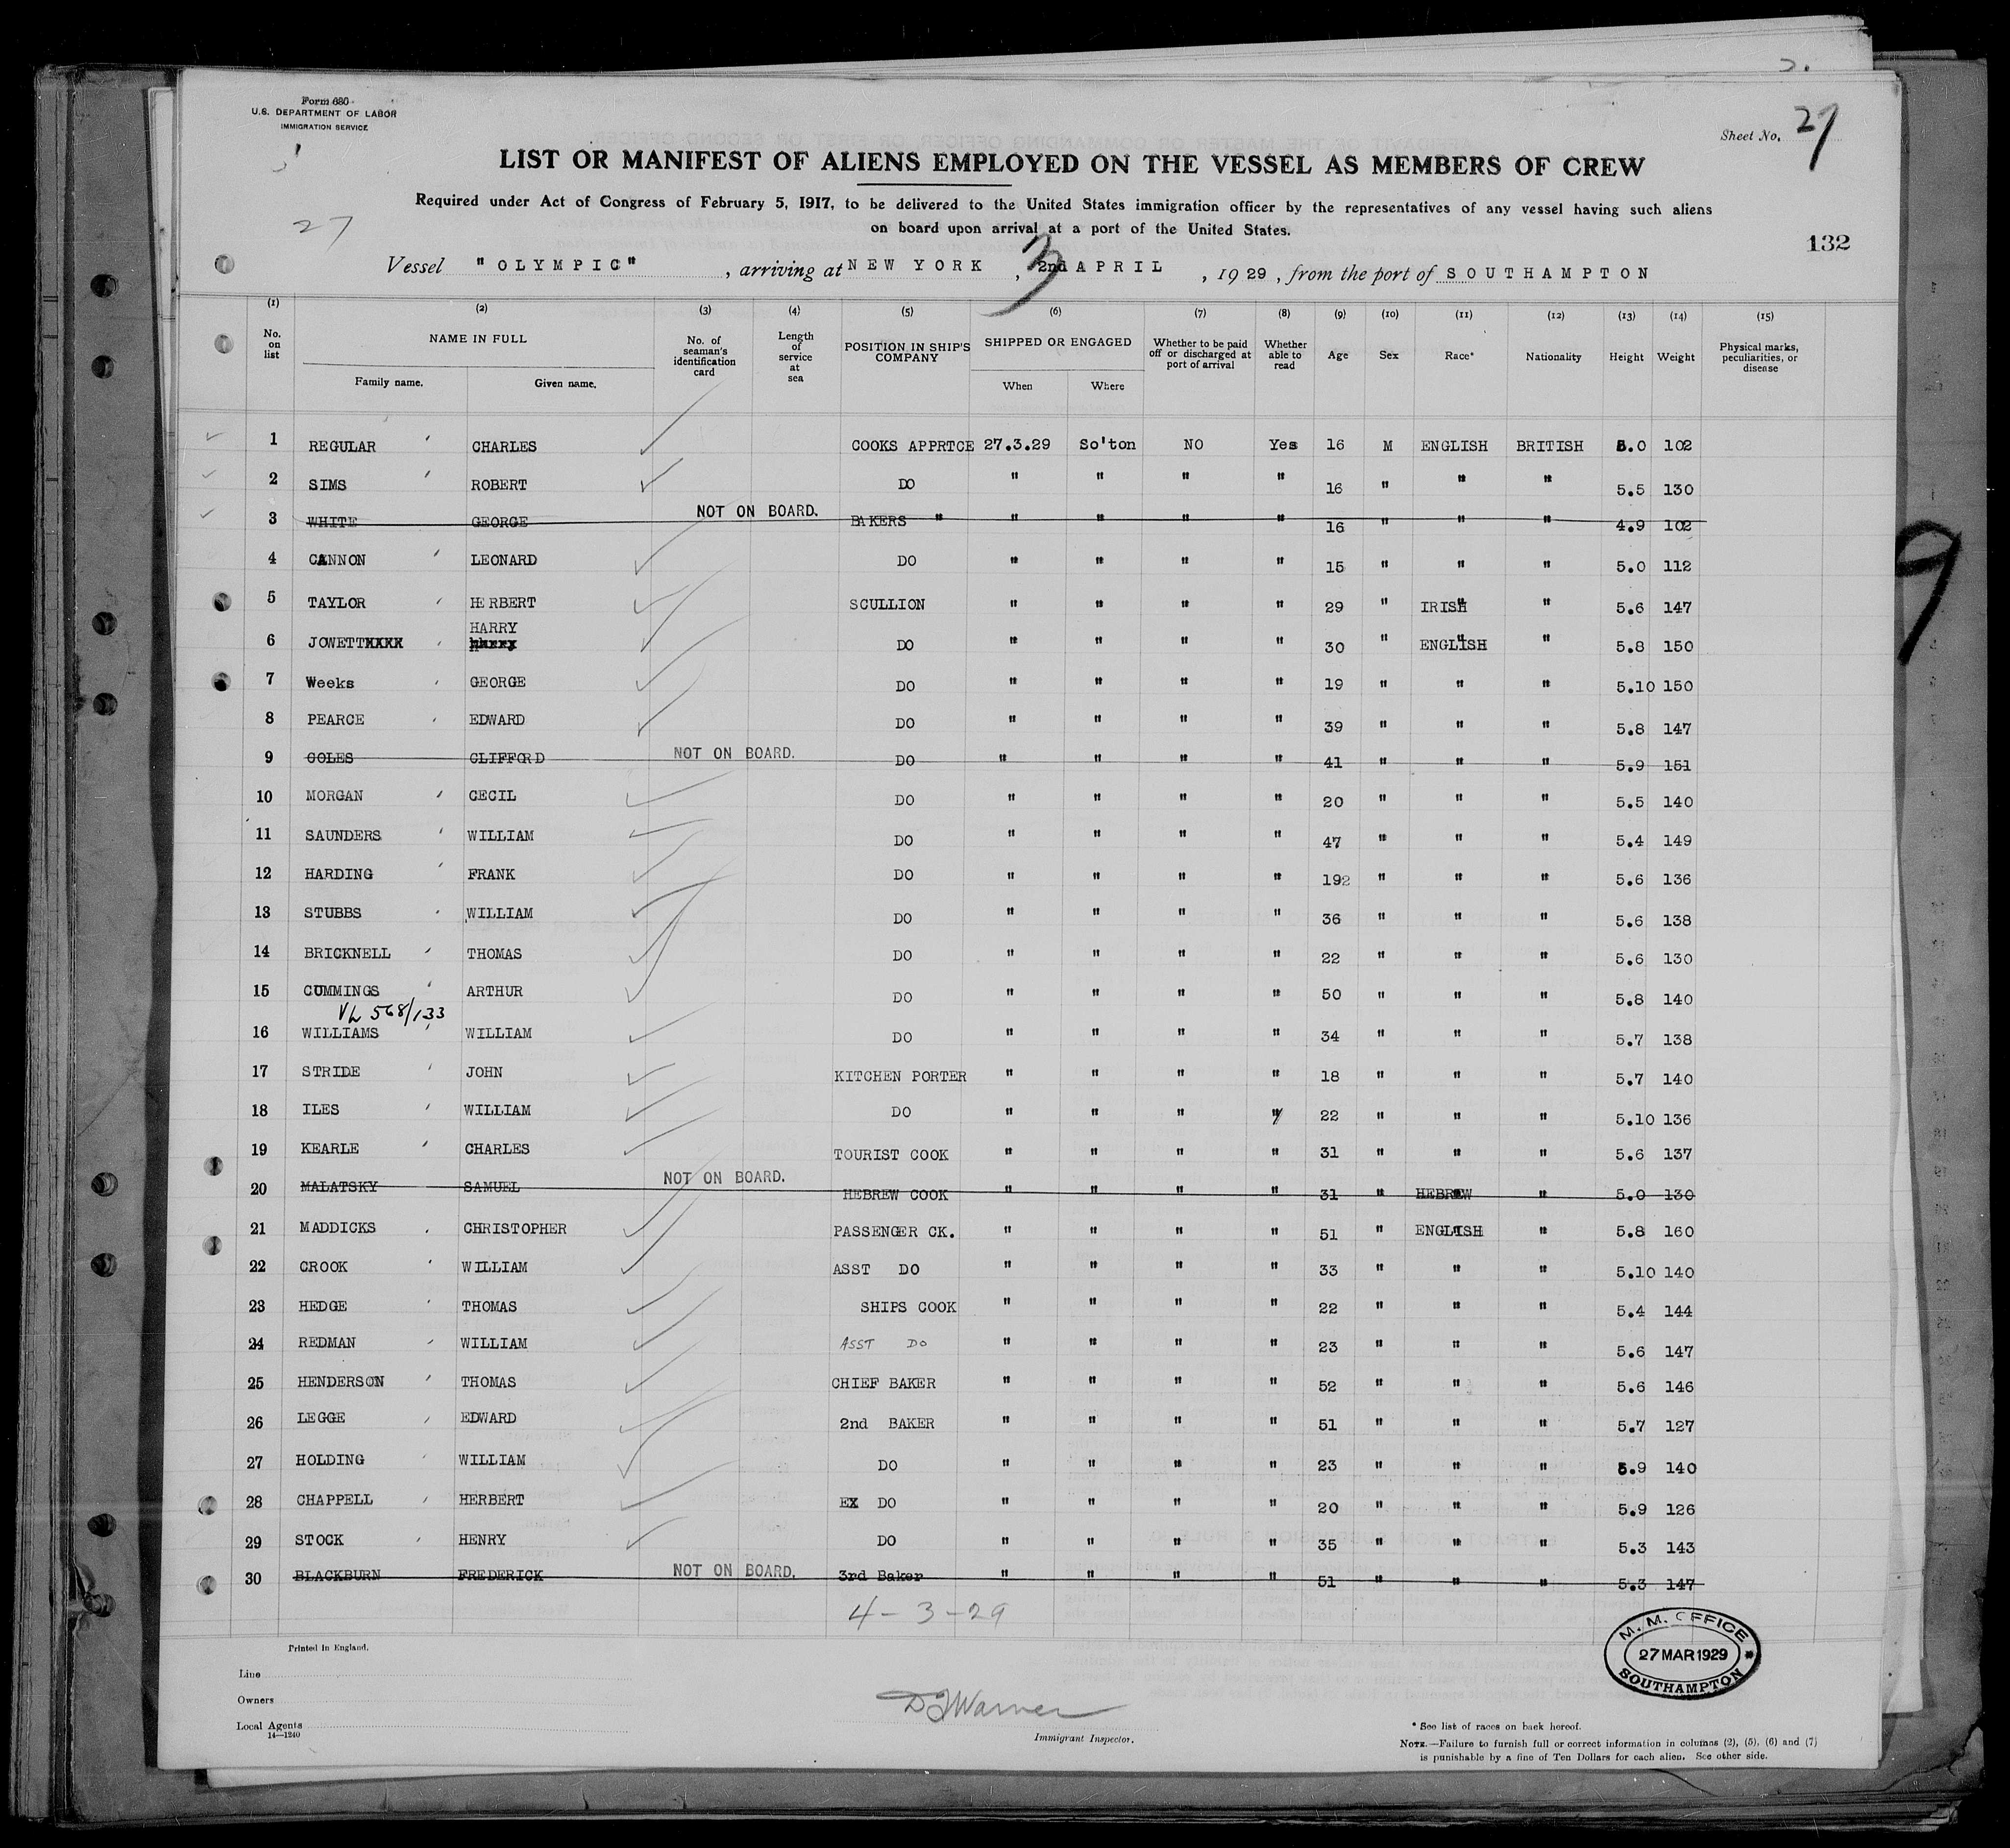 Form 680
U.S. DEPARTMENT OF LABOR
IMMIGRATION SERVICE
Sheet No. 27
LIST OR MANIFEST OF ALIENS EMPLOYED ON THE VESSEL AS MEMBERS OF CREW
Required under Act of Congress of February 5, 1917, to be delivered to the United States immigration officer by the representatives of any vessel having such aliens
on board upon arrival at a port of the United States.
27
132
Vessel "OLYMPIC", arriving at NEW YORK, 2nd 3 APRIL, 1929, from the port of SOUTHAMPTON
(1) (2) (3) (4) (5) (6) (7) (8) (9) (10) (11) (12) (13) (14) (15)
No. on list NAME IN FULL No. of seaman's identification card Length of service at sea POSITION IN SHIP'S COMPANY SHIPPED OR ENGAGED Whether to be paid off or discharged at port of arrival Whether able to read Age Sex Race* Nationality Height Weight Physical marks, peculiarities, or disease
Family name. Given name. When Where
1 REGULAR CHARLES COOKS APPRTCE 27.3.29 So'ton NO Yes 16 M ENGLISH BRITISH 5.0 102
2 SIMS ROBERT DO " " " " 16 " " " 5.5 130
3 WHITE GEORGE NOT ON BOARD. BAKERS " " " " " 16 " " " 4.9 102
4 CANNON LEONARD DO " " " " 15 " " " 5.0 112
5 TAYLOR HERBERT SCULLION " " " " 29 " IRISH " 5.6 147
HARRY
6 JOWETTXXXX DO " " " " 30 " ENGLISH " 5.8 150
7 Weeks GEORGE DO " " " " 19 " " " 5.10 150
8 PEARCE EDWARD DO " " " " 39 " " " 5.8 147
9 COLES CLIFFORD NOT ON BOARD. DO " " " " 41 " " " 5.9 151
10 MORGAN CECIL DO " " " " 20 " " " 5.5 140
11 SAUNDERS WILLIAM DO " " " " 47 " " " 5.4 149
12 HARDING FRANK DO " " " " 192 " " " 5.6 136
13 STUBBS WILLIAM DO " " " " 36 " " " 5.6 138
14 BRICKNELL THOMAS DO " " " " 22 " " " 5.6 130
15 CUMMINGS ARTHUR DO " " " " 50 " " " 5.8 140
VL 568/133
16 WILLIAMS WILLIAM DO " " " " 34 " " " 5.7 138
17 STRIDE JOHN KITCHEN PORTER " " " " 18 " " " 5.7 140
18 ILES WILLIAM DO " " " " 22 " " " 5.10 136
19 KEARLE CHARLES TOURIST COOK " " " " 31 " " " 5.6 137
20 MALATSKY SAMUEL NOT ON BOARD. HEBREW COOK " " " " 31 " HEBREW " 5.0 130
21 MADDICKS CHRISTOPHER PASSENGER CK. " " " " 51 " ENGLISH " 5.8 160
22 CROOK WILLIAM ASST DO " " " " 33 " " " 5.10 140
23 HEDGE THOMAS SHIPS COOK " " " " 22 " " " 5.4 144
24 REDMAN WILLIAM ASST DO " " " " 23 " " " 5.6 147
25 HENDERSON THOMAS CHIEF BAKER " " " " 52 " " " 5.6 146
26 LEGGE EDWARD 2nd BAKER " " " " 51 " " " 5.7 127
27 HOLDING WILLIAM DO " " " " 23 " " " 5.9 140
28 CHAPPELL HERBERT EX DO " " " " 20 " " " 5.9 126
29 STOCK HENRY DO " " " " 35 " " " 5.3 143
30 BLACKBURN FREDERICK NOT ON BOARD. 3rd Baker " " " " 51 " " " 5.3 147
4-3-29
9
Printed in England.
Line
Owners
Local Agents
14—1240
DJWarner
Immigrant Inspector.
M. M. OFFICE
27 MAR 1929
SOUTHAMPTON
* See list of races on back hereof.
NOTE.—Failure to furnish full or correct information in columns (2), (5), (6) and (7)
is punishable by a fine of Ten Dollars for each alien. See other side.